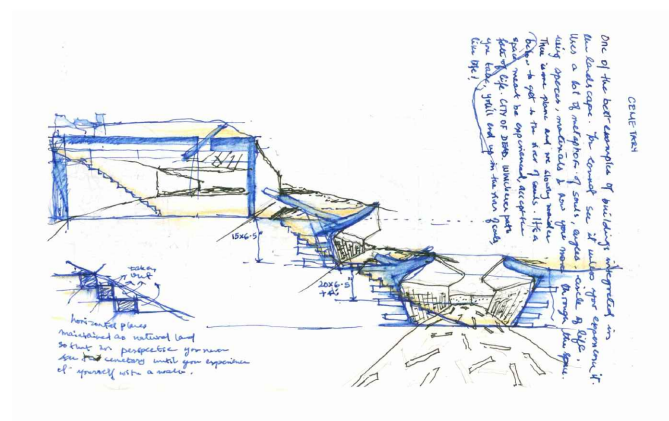 CEMETARY
One of the best examples of buildings integrated in
the landscape. You cannot see it unless you experience it.
Uses a lot of metaphors of souls, angels, circle of life
using spaces, materials & how you move through the space.
There is one plane and we slowly wander
below to get to the river of souls. It's a
space meant to be experienced, acceptance
fate of life. CITY OF DEAD. Whichever path
you take, you'll end up in the river of souls
like life!
15x6.5"
20x6.5"
taken
out
horizontal planes
maintained as natural land
so that in perspective you never
see the cemetary until you experience
it yourself with a walk.